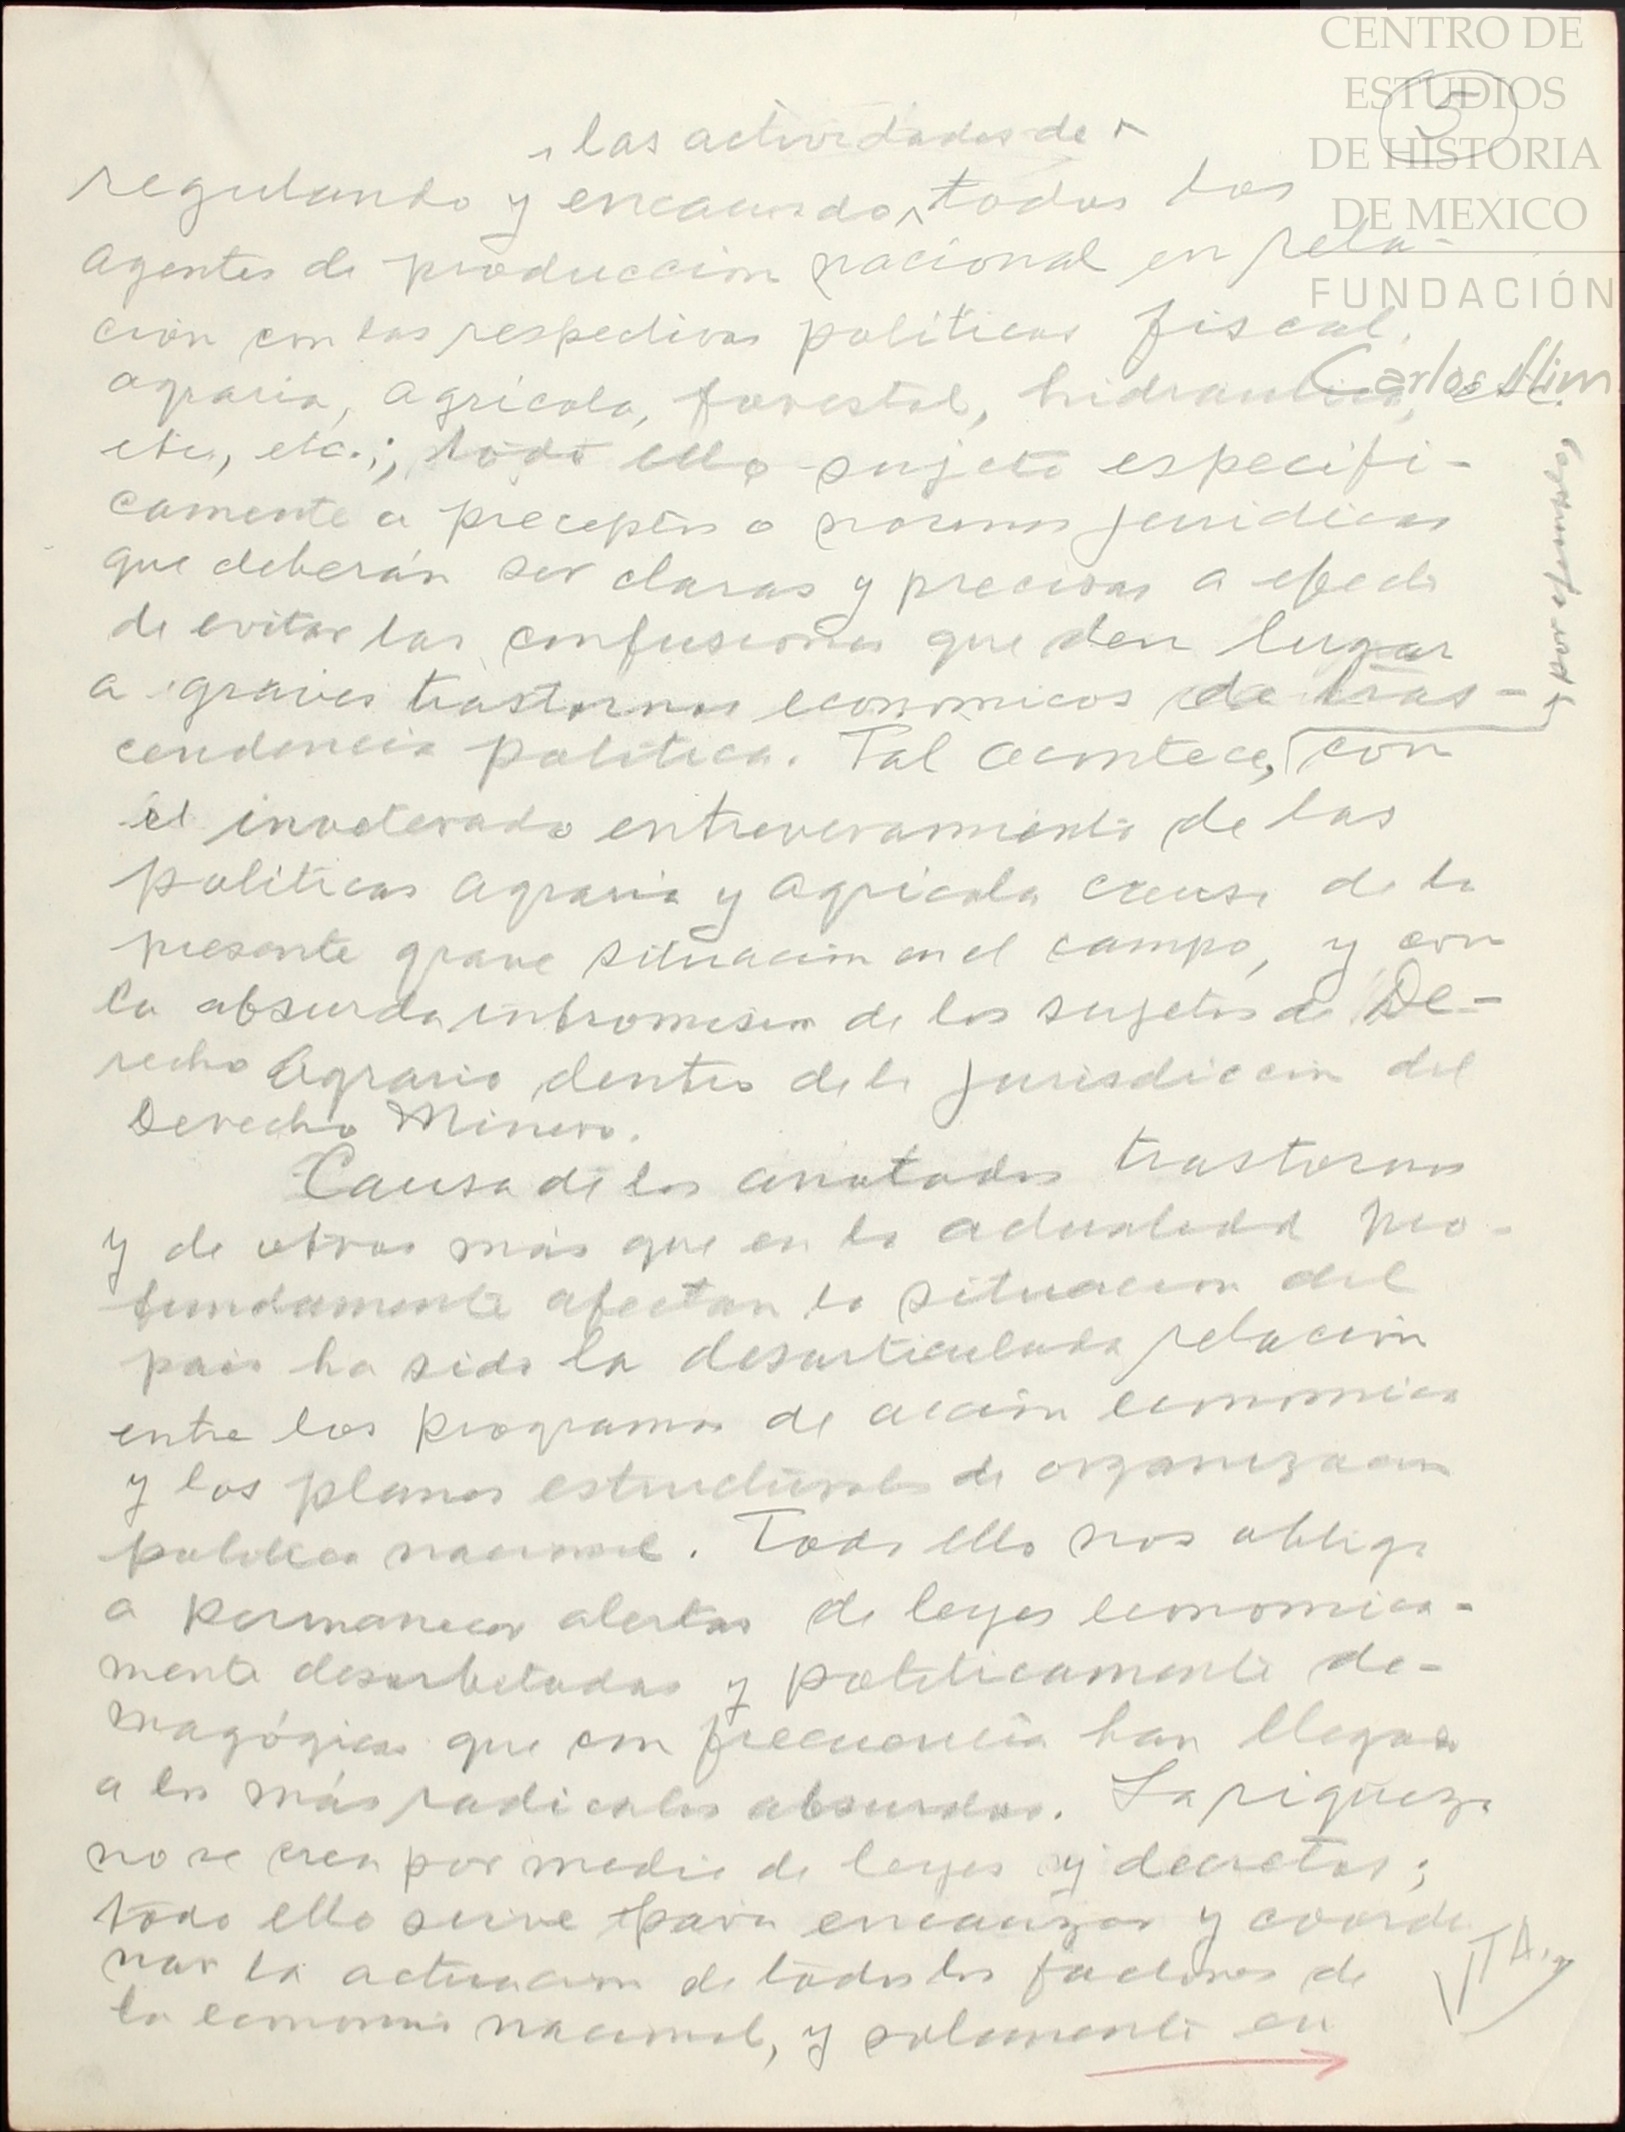 CENTRO DE
ESTUDIOS
DE HISTORIA
DE MEXICO
FUNDACIÓN
Carlos Slim
5
las actividades de
regulando y encausando, todos los
agentes de producción nacional en rela-
ción con las respectivas políticas fiscal,
agraria, agrícola, forestal, hidraulica, etc.
etc., etc.; todo ello sujeto especifi-
camente a preceptos o normas juridicas
que deberán ser claras y precisas a efecto
de evitar las confusiones que den lugar
a graves trastornos economicos de tras-
cendencia politica. Tal acontece, con
por ejemplo,
el inveterado entreveramiento de las
politicas agraria y agricola causa de la
presente grave situacion en el campo, y con
la absurda intromision de los sujetos de De-
recho Agrario dentro de la jurisdiccion del
Derecho Minero.
Causa de los anotados trastornos
y de otros más que en la actualidad pro-
fundamente afectan la situacion del
pais ha sido la desarticulada relación
entre los programas de acción economica
y los planes estructurales de organizacion
politica nacional. Todo ello nos obliga
a permanecer alertas de leyes economica-
mente desorbitadas y politicamente de-
magógicas que con frecuencia han llegado
a los más radicales absurdos. La riqueza
no se crea por medio de leyes y decretos;
todo ello sirve para encauzar y coordi
nar la actuacion de todos los factores de
la economia nacional, y solamente en